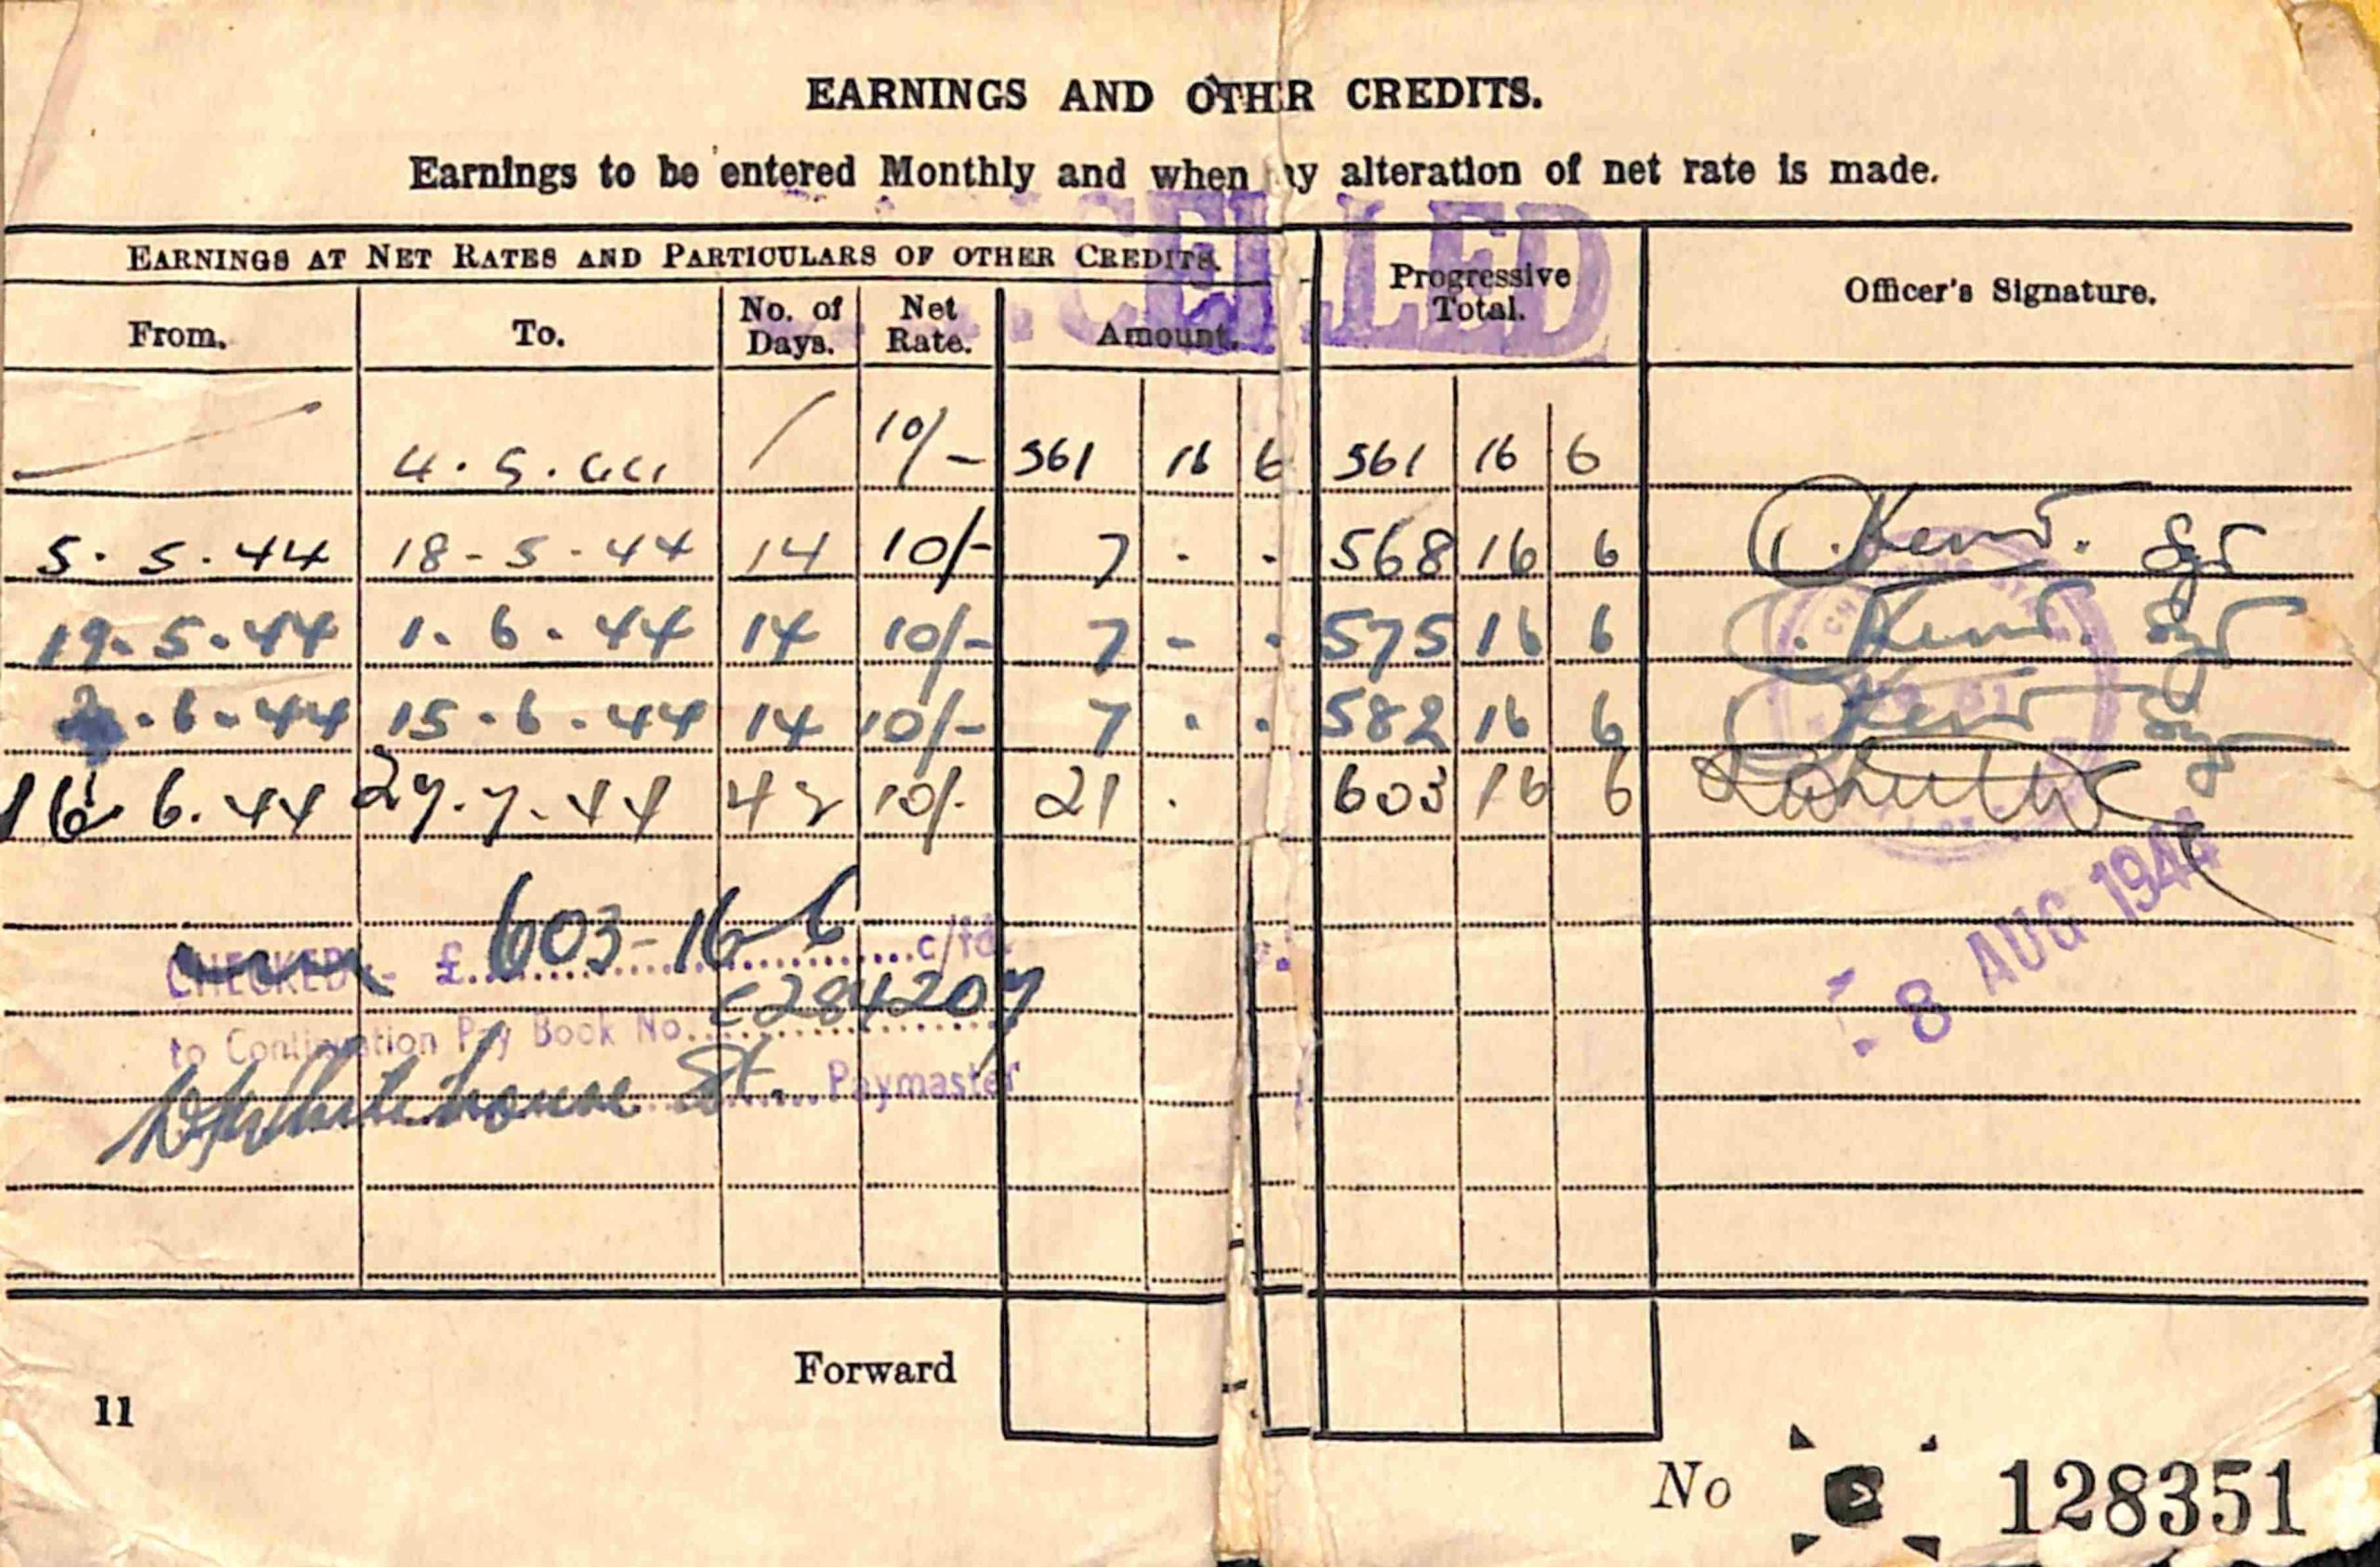 EARNINGS AND OTHER CREDITS.
Earnings to be entered Monthly and when ny alteration of net rate is made.
CELLED
EARNINGS AT NET RATES AND PARTICULARS OF OTHER CREDITS. Progressive Total. Officer's Signature.
From. To. No. of Days. Net Rate. Amount.
4.5.44 10/- 561 16 6 561 16 6
5.5.44 18-5-44 14 10/- 7 . . 568 16 6 Kent. Sgt
19.5.44 1.6.44 14 10/- 7 - . 575 16 6 Kent. Sgt
2.6.44 15.6.44 14 10/- 7 . . 582 16 6 Kent Sgt
16.6.44 27.7.44 42 10/- 21 . 603 16 6
CHECKED - £ 603-16-6 c/fd.
to Continuation Pay Book No. C284207
Whitehouse Lt. Paymaster
8 AUG 1944
Forward
11
No 128351